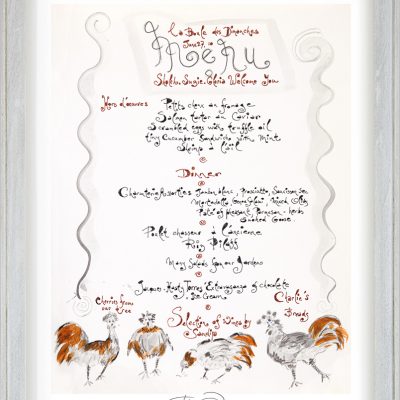 La Boule des Dimanches
June 27, 10
Menu
Shalila, Suzie, Gloria Welcome You
Hors d'oeuvres
Petits choux au fromage
Salmon tartar au Caviar
Scrambled eggs with truffle oil
tiny Cucumber Sandwiches with Mint
Shrimp à l'ail
Dinner
Charcuterie Assorties Jambon blanc, Prosciutto, Saucisson Sec
Mortadella, Mixed Olives
Paté of pheasant, Parmesan - herbs
Smoked Goose
Poulet chasseur à l'ancienne
Riz Pilaff
Many Salads from our Gardens
Jacques-Housty Torres Extravaganza of chocolate
& Ice Cream
Cherries from
our tree
Selections of Wines by
Sandria
Charlie's
Breads